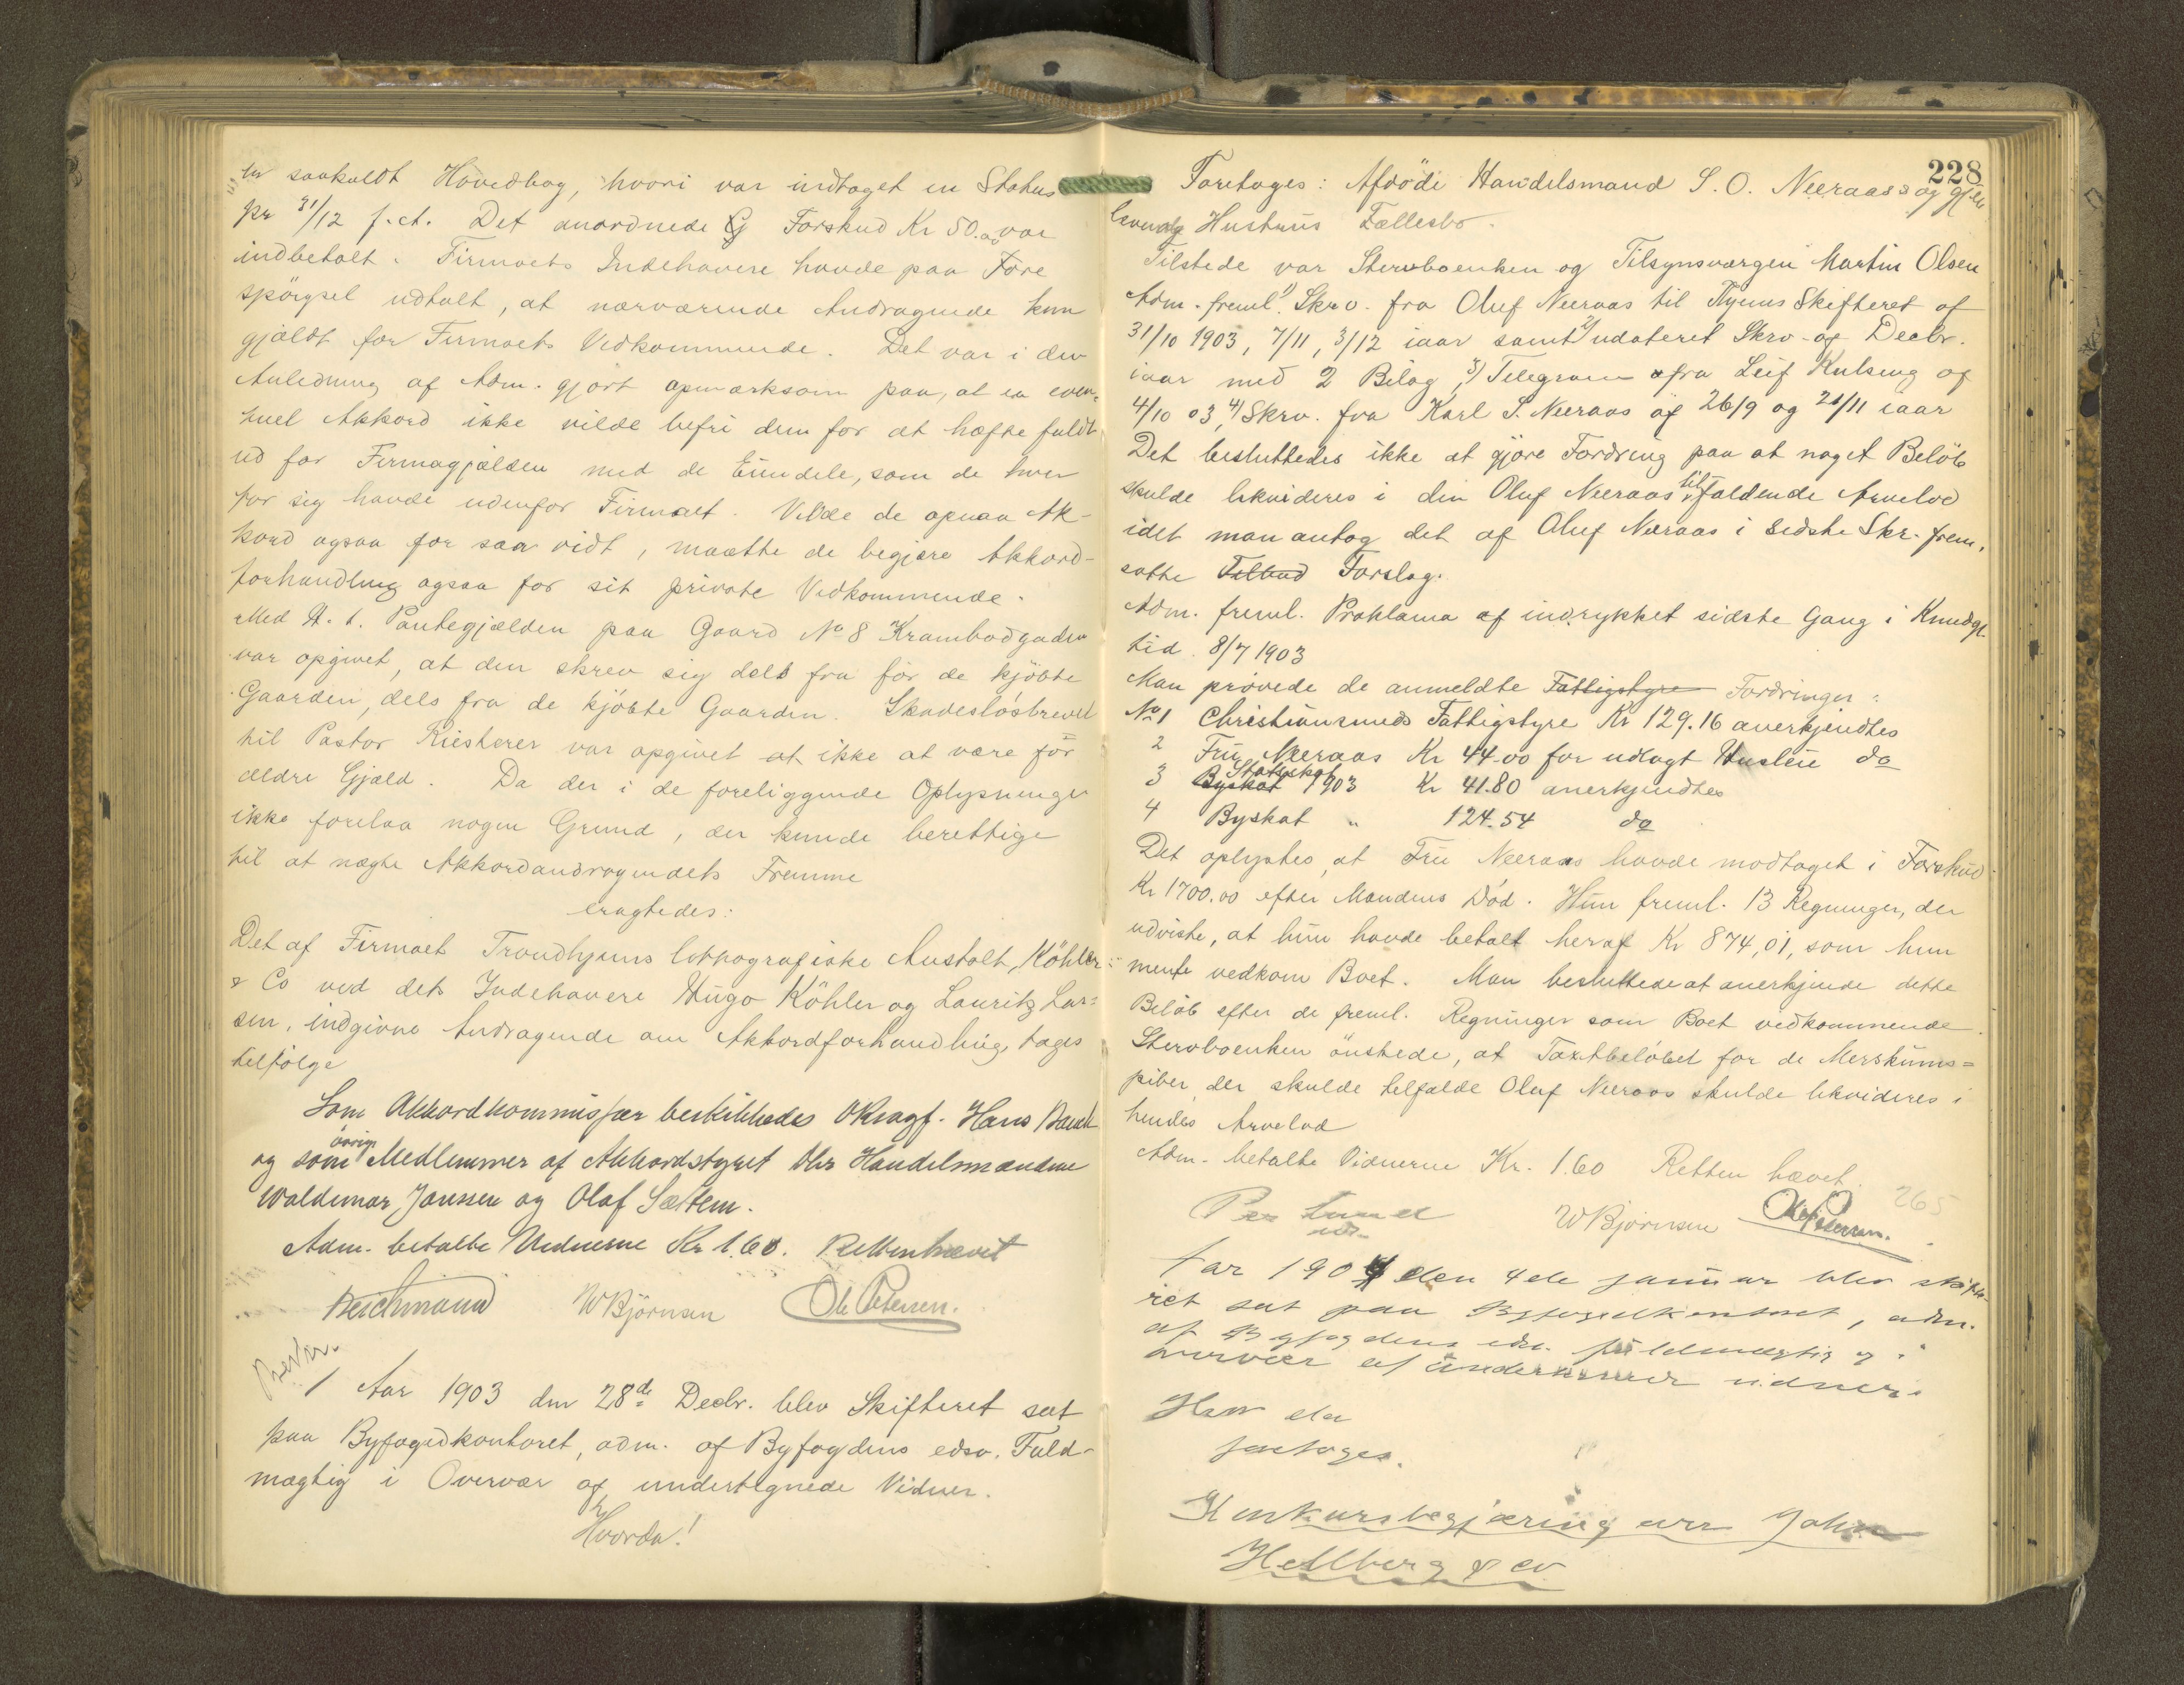 en saakaldt Hovedbog, hvori var indtaget en Status
pr 31/12 f. A. Det anordnede Forskud Kr 50.00 var
indbetalt. Firmaets Indehavere havde paa Fore
spörgsel udtalt, at nærværende Andragende kun
gjaldt for Firmaets Vedkommende. Det var i den
Anledning af Adm. gjort opmærksom paa, at en even-
tuel Akkord ikke vilde befri dem for at hæfte fuldt
ud for Firmagjælden med de Eiendele, som de hver
for sig havde udenfor Firmaet. Vilde de opnaa Ak-
kord ogsaa for saa vidt, maatte de begjære Akkord-
forhandling ogsaa for sit private Vedkommende.
Med H. t. Pantegjælden paa Gaard No 8 Krambodgaden
var opgivet, at den skrev sig dels fra för de kjöbte
Gaarden, dels fra de kjöbte Gaarden. Skadeslösbrevet
til Pastor Riesterer var opgivet at ikke at være for
ældre Gjæld. Da der i de foreliggende Oplysninger
ikke forelaa nogen Grund, der kunde berettige
til at nægte Akkordandragendets Fremme
eragtedes:
Det af Firmaet Trondhjems lithografiske Anstalt, Köhler
& Co ved dets Indehavere Hugo Köhler og Lauritz Lar=
sen, indgivne Andragende om Akkordforhandling, tages
tilfölge
Som Akkordkommissær beskikkedes ORsagf. Hans Bauck
og som övrige Medlemmer af Akkordstyret Hrr Handelsmændene
Waldemar Janssen og Olaf Sættem.
Adm. betalte Vidnerne Kr 1.60. Retten hævet
Reichmann WBjörnsen Ole Petersen.
Aar 1903 den 28de Decbr. blev Skifteret sat
paa Byfogedkontoret, adm. af Byfogdens edsv. Fuld-
mægtig i Overvær af undertegnede Vidner.
Hvorda!
228
Foretoges: Afdöde Handelsmand S. O. Neeraas og gjen
levende Hustrus Fællesbo.
Tilstede var Stervboenken og Tilsynsværgen Martin Olsen
Adm. freml. 1) Skrv. fra Oluf Neeraas til Thjems Skifteret af
31/10 1903, 7/11, 3/12 iaar samt 2) udateret Skrv. af Decbr.
iaar med 2 Bilag, 3) Telegram fra Leif Kulseng af
4/10 03, 4) Skrv. fra Karl S. Neeraas af 26/9 og 21/11 iaar
Det besluttedes ikke at gjöre Fordring paa at noget Belöb
skulde likvideres i den Oluf Neeraas tilfaldende Arvelod
idet man antog det af Oluf Neeraas i sidste Skr. frem-
satte Tilbud Forslag.
Adm. freml. Proklama af indrykket sidste Gang i Kundgj.
tid. 8/7 1903
Man prövede de anmeldte Fattigstyre Fordringer:
No 1 Christiansunds Fattigstyre Kr 129.16 anerkjendtes
2 Fru Neeraas Kr 44.00 for udlagt Husleie do
3 Byskat Statsskat 1903 Kr 41.80 anerkjendtes
4 Byskat " 124.54 do
Det oplystes, at Fru Neeraas havde modtaget i Forskud
Kr 1700.00 efter Mandens Död. Hun freml. 13 Regninger, der
udviste, at hun havde betalt heraf Kr 874,01, som hun
mente vedkom Boet. Man besluttede at anerkjende dette
Belöb efter de freml. Regninger som Boet vedkommende.
Stervboenken önskede, at Taxtbelöbet for de Merskums=
piber, der skulde tilfalde Oluf Neeraas skulde likvideres i
hendes Arvelod
Adm. betalte Vidnerne Kr. 1.60 Retten hævet.
265
Per Lund WBjörnsen Ole Petersen.
Aar 1904 den 4de januar blev skifte-
ret sat paa Byfogedkontoret, adm.
af Byfogdens edsv. fuldmægtig i
overvær af undertegnede vidner.
Hvor da
foretoges.
Konkursbegjæring over John
Hellberg & Co